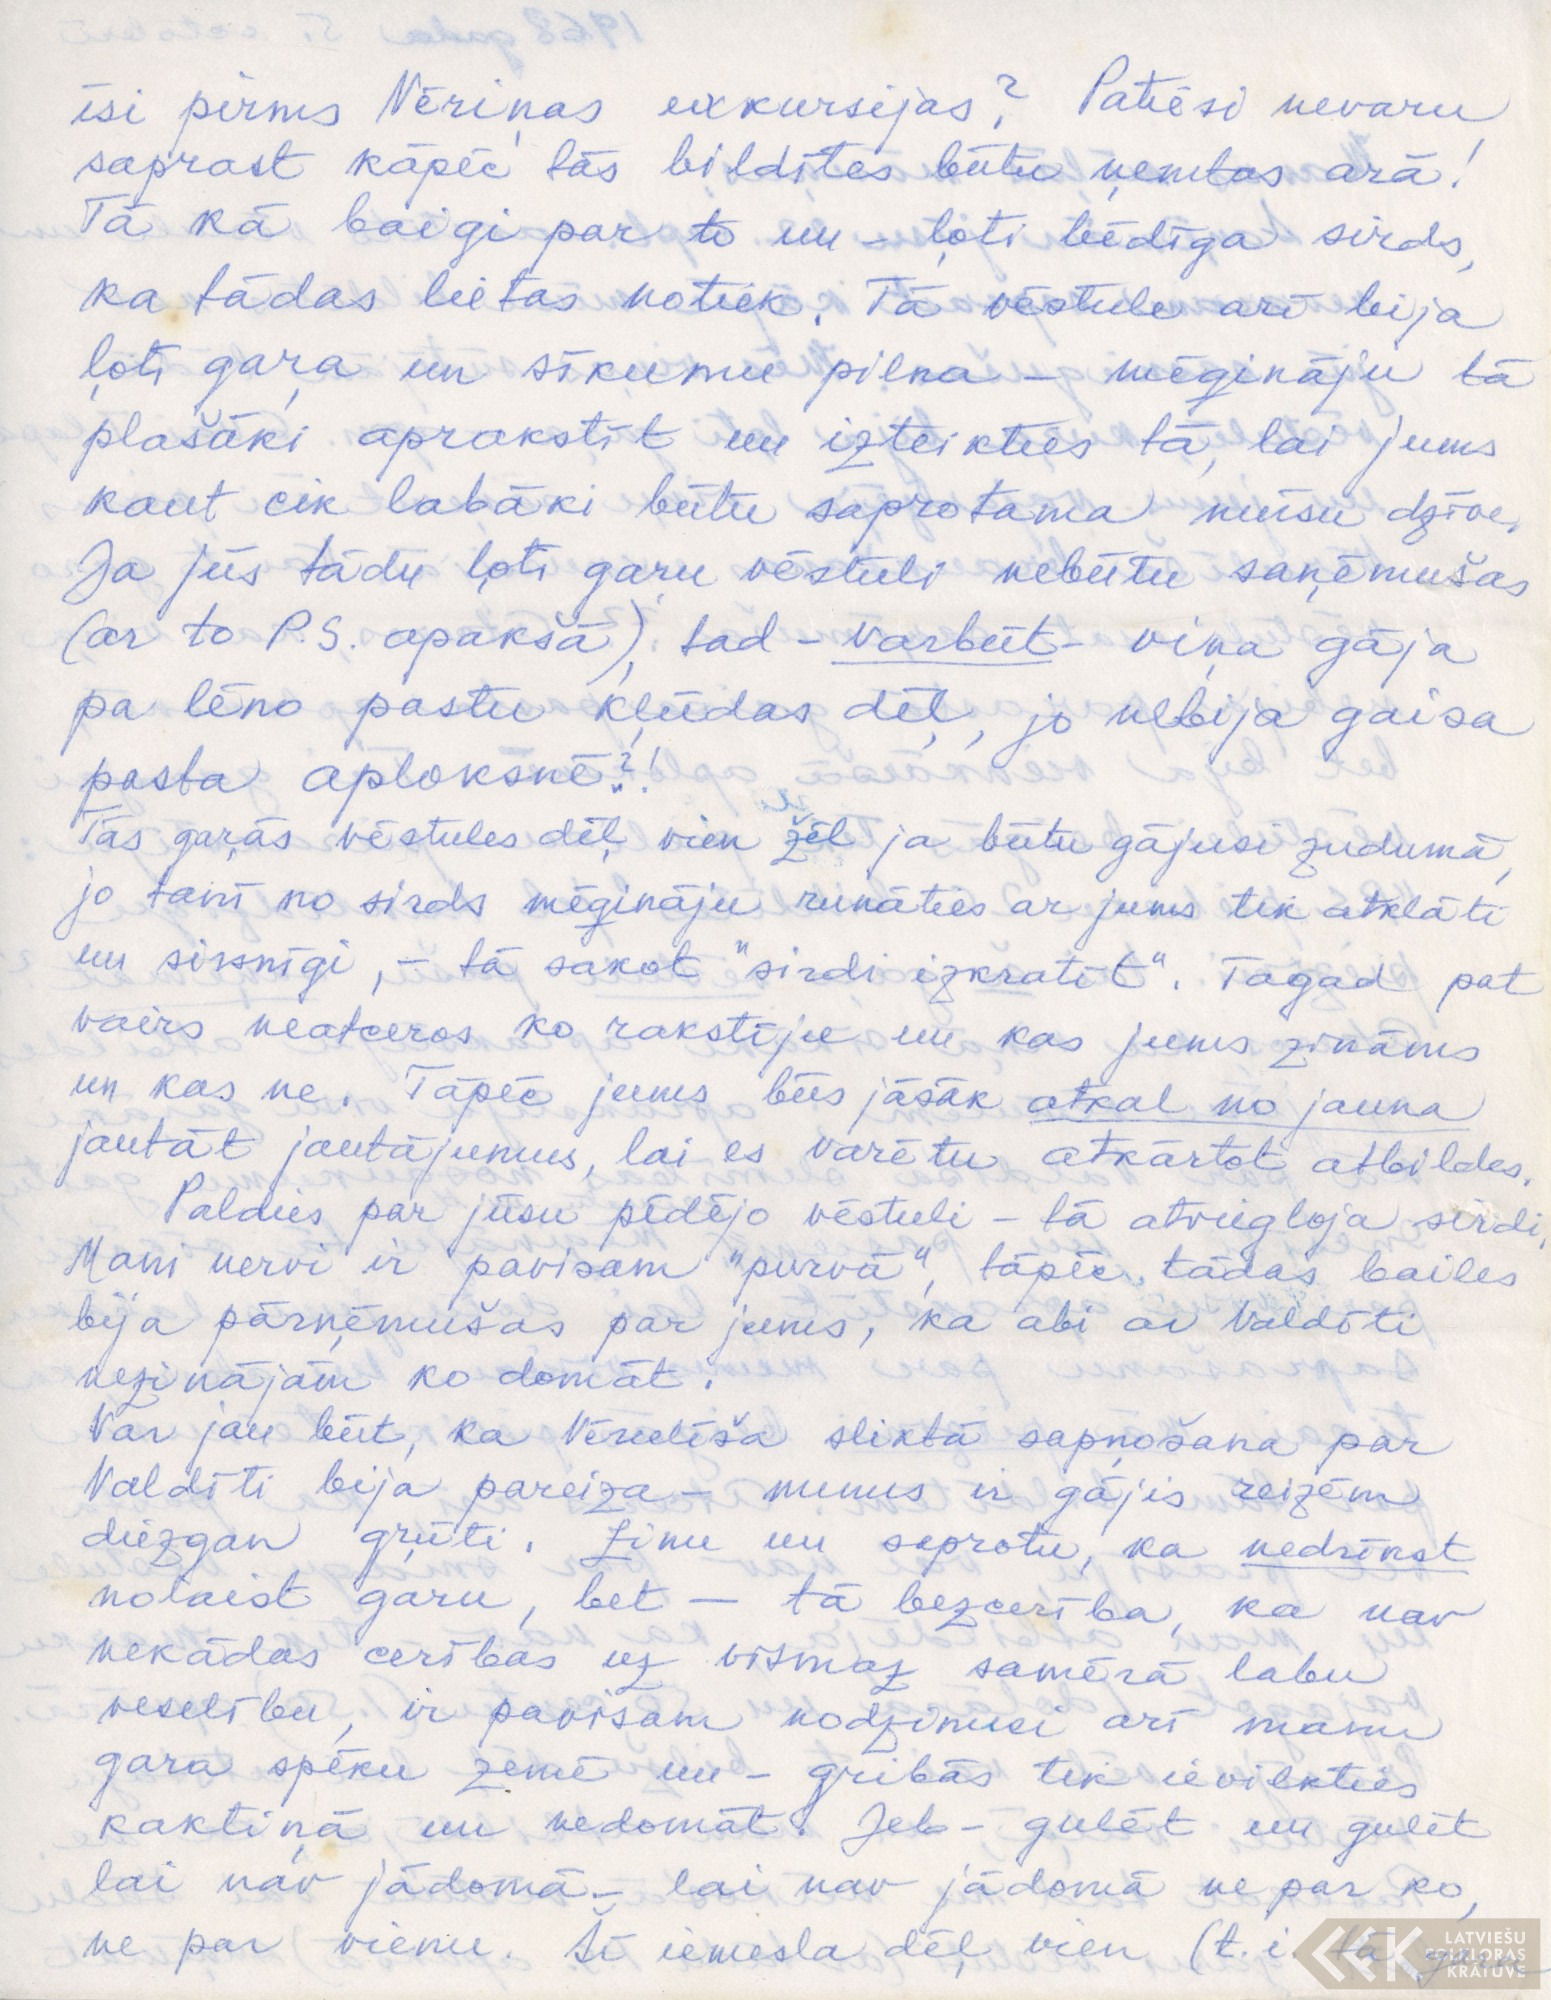 īsi pirms Nēriņas exkursijas? Patiesi nevaru
saprast kāpēc tās bildītes būtu ņemtas arā!
Tā kā baigi par to un – ļoti bēdīga sirds,
ka tādas lietas notiek. Tā vēstule arī bija
ļoti gaŗa un sīkumu pilna – mēģināju tā
plašāki aprakstīt un izteikties tā, lai jums
kaut cik labāki būtu saprotama mūsu dzīve.
Ja jūs tādu ļoti gaŗu vēstuli nebūtu saņēmušas
(ar to P.S. apakšā), tad – varbūt – viņa gāja
pa lēno pastu kļūdas dēļ, jo nebija gaisa
pasta aploksnē?!
Tās gaŗās vēstules dēļ vien žēl ja būtu gājusi zudumā,
jo tanī no sirds mēģināju runāties ar jums tik atklāti
un sirsnīgi, – tā sakot "sirdi izkratīt". Tagad pat
vairs neatceros ko rakstīju un kas jums zināms
un kas ne. Tāpēc jums būs jāsāk atkal no jauna
jautāt jautājumus, lai es varētu atkārtot atbildes.
Paldies par jūsu pēdējo vēstuli – tā atviegloja sirdi.
Mani nervi ir pavisam "purvā", tāpēc tādas bailes
bija pārņēmušas par jums, ka abi ar Valdīti
nezinājām ko domāt.
Var jau būt, ka sliktā sapņošana par
Valdīti bija pareiza – mums ir gājis reizēm
diezgan grūti. Zinu un saprotu, ka nedrīkst
nolaist garu, bet – tā bezcerība, ka nav
nekādas cerības uz vismaz samērā labu
veselību, ir pavisam nodzinusi arī manu
gara spēku zemē un – gribās tik ievilkties
kaktiņā un nedomāt. Jeb – gulēt un gulēt
lai nav jādomā – lai nav jādomā ne par ko,
ne par vienu. Šī iemesla dēļ vien (t.i. tā
LATVIEŠU
FOLKLORAS
KRĀTUVE